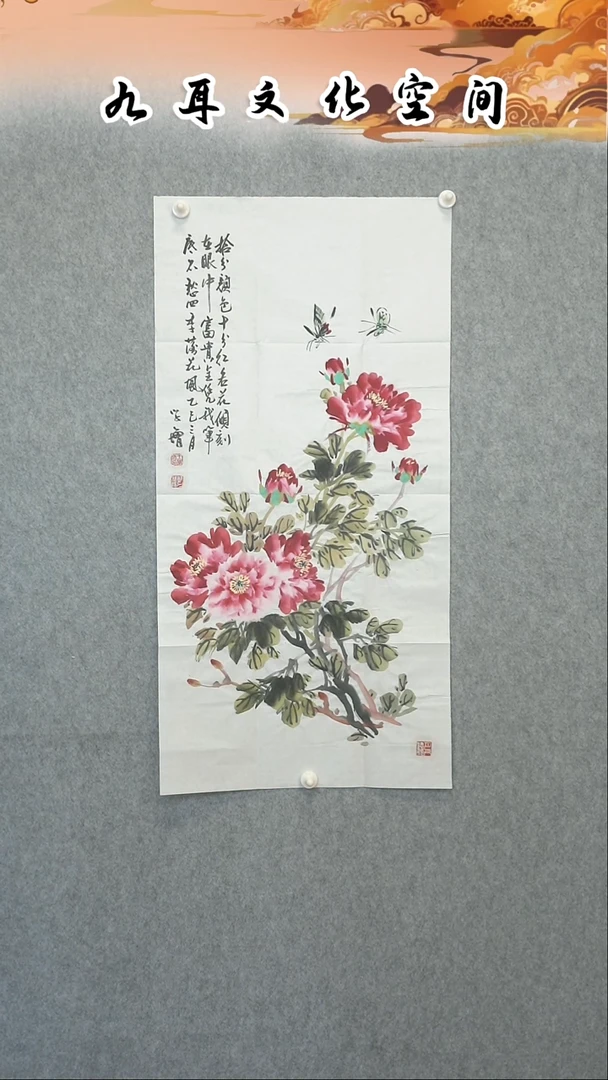 九耳文化空间
拾分颜色十分红名花倾刻
在眼中富贵全凭我笔
底不愁四季落花風乙巳三月